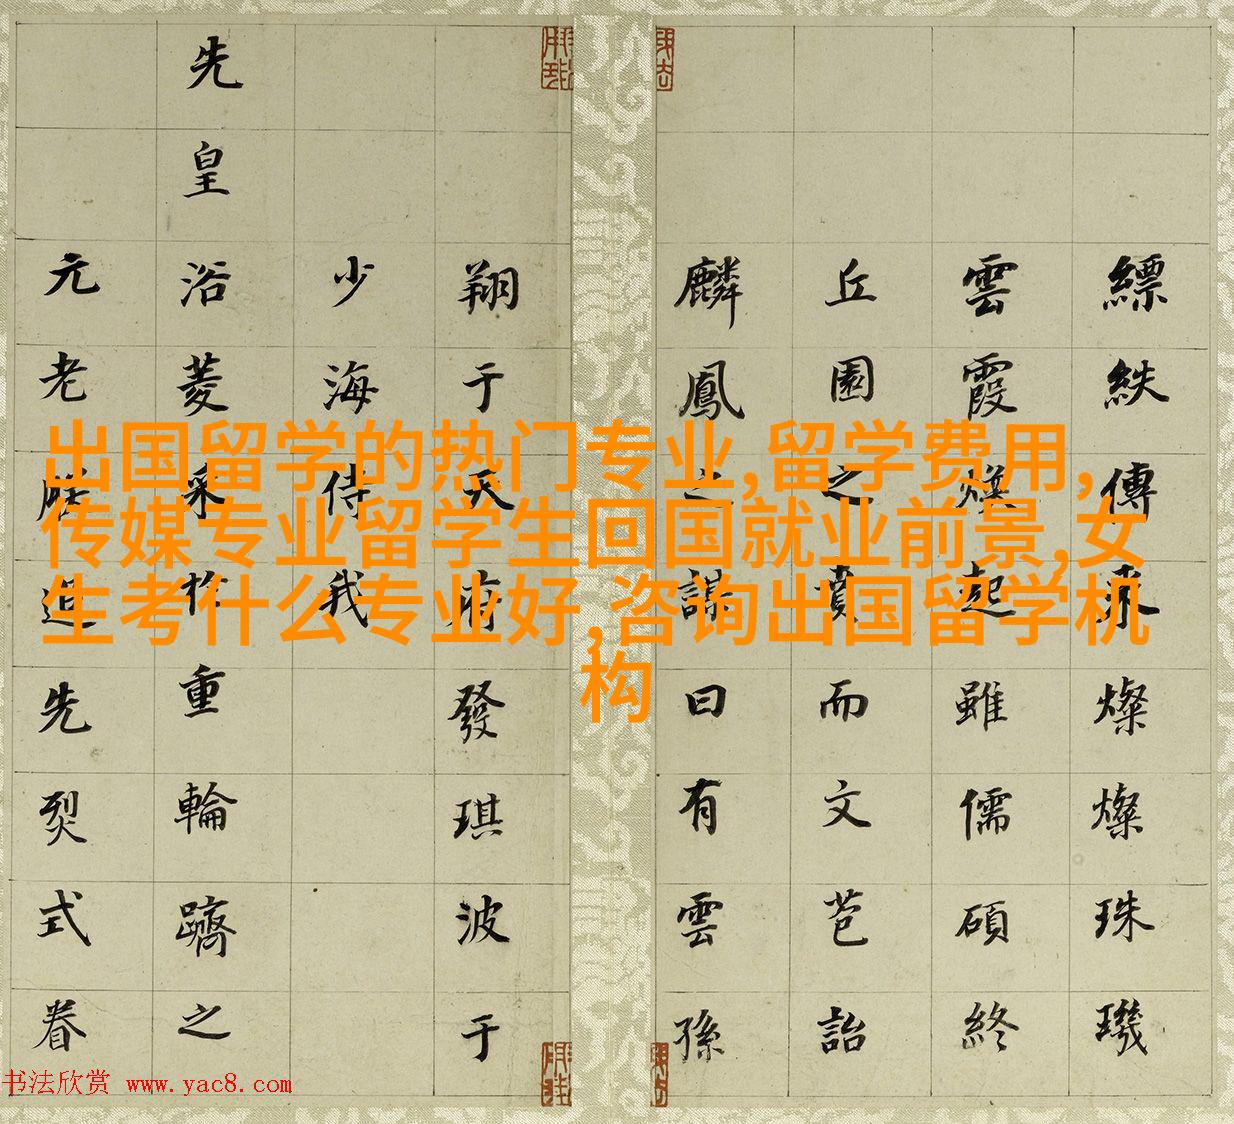 縹紩傳來燦燦珠璣
雲霞燦起雖儒碩終
丘園之賁而文苞詒
麟鳳之謀曰有雲孫
翔于天衢發琪波于
少海侍我
先皇浴菱采於重輪躋之
元老啟迪先烈式眷
出国留学的热门专业,留学费用,
传媒专业留学生回国就业前景,女
生考什么专业好,咨询出国留学机
构
书法欣赏 www.yac8.com